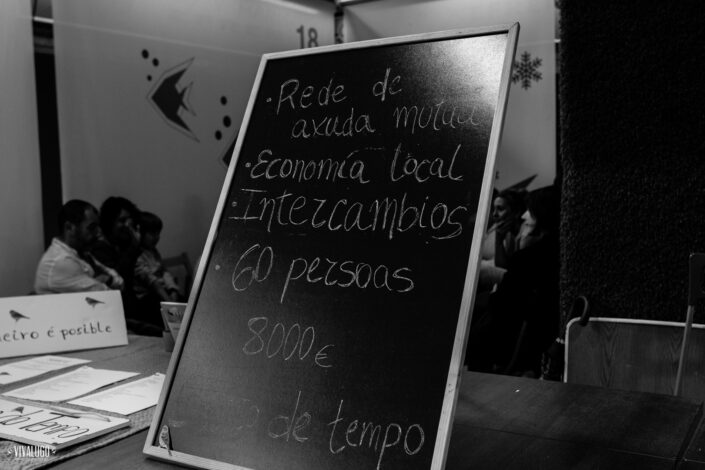 18
· Rede de
axuda mutua
· Economía local
· Intercambios
· 60 persoas
8000€
de tempo
eiro é posible
do Tempo
VIVALUGO